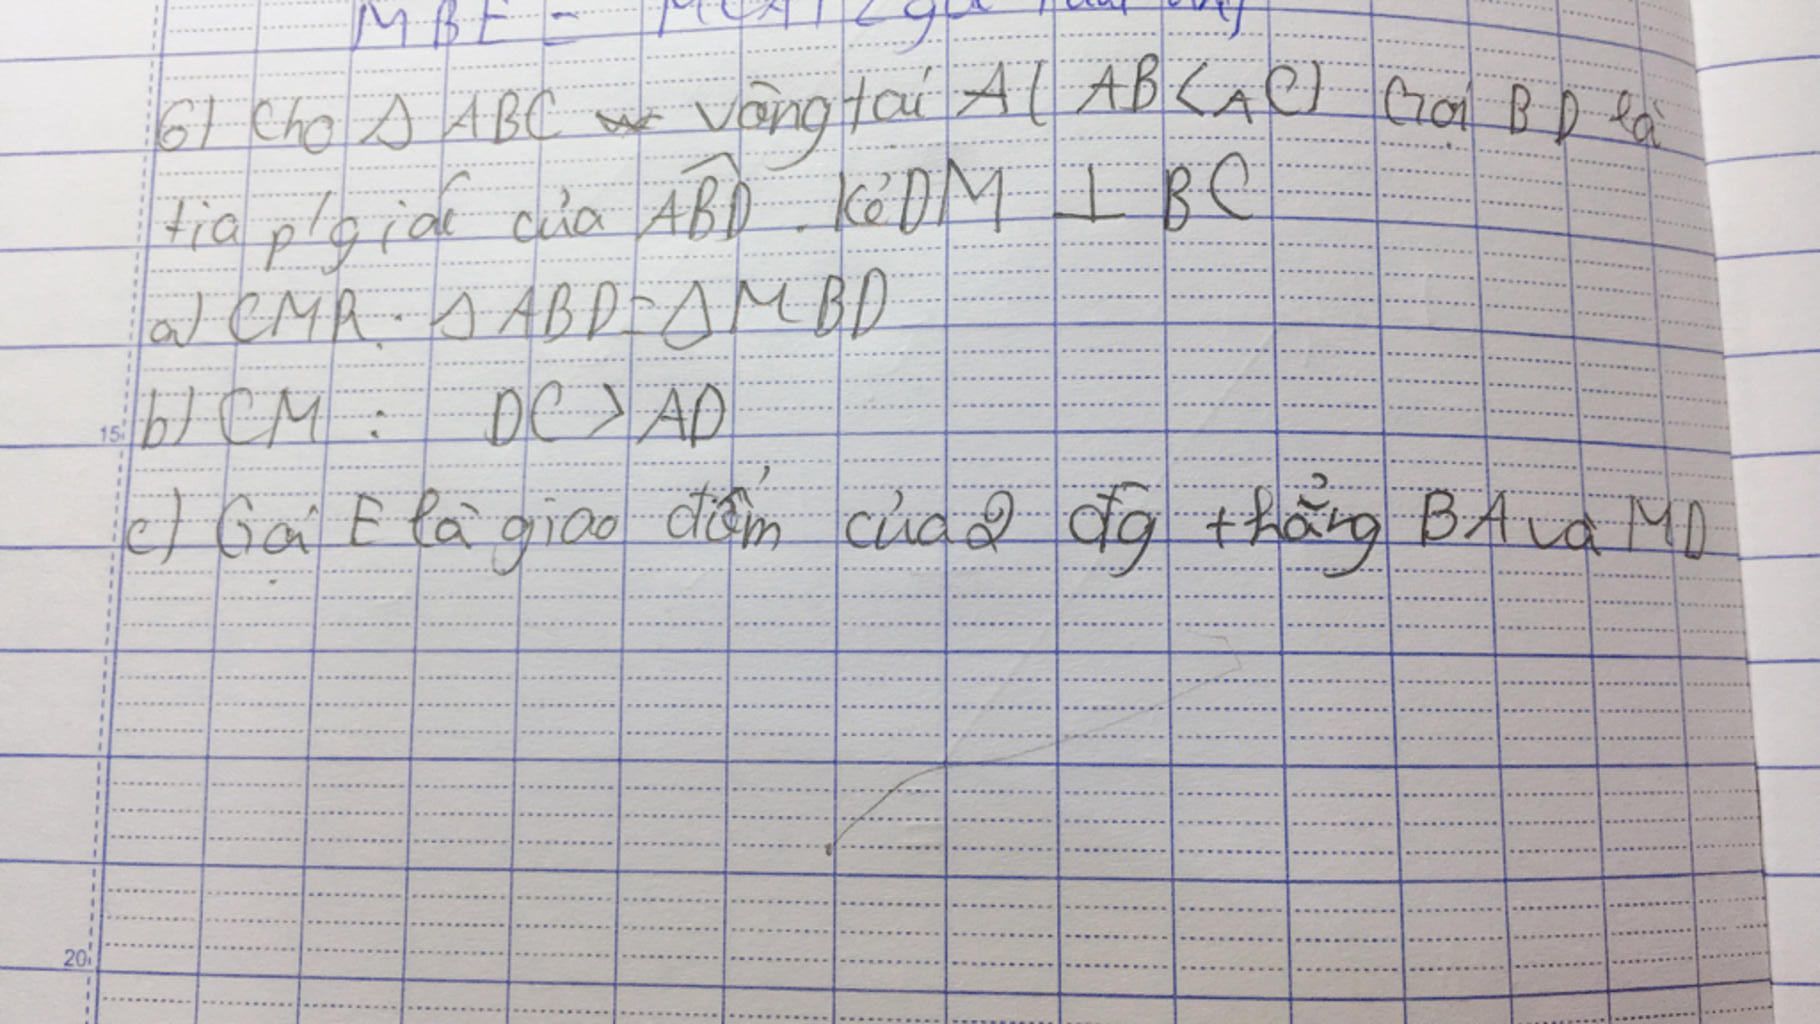 MBE =
6) Cho Δ ABC vông tại A ( AB < AC) Gọi BD là
tia p/giác của ABD . Kẻ DM ⊥ BC
a) CMR : Δ ABD = Δ MBD
15 b) CM : DC > AD
c) Gọi E là giao điểm của 2 đg thẳng BA và MD
20